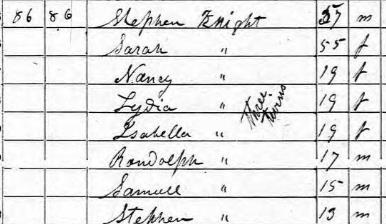 86 86 Stephen Knight 57 m
Sarah " 55 f
Nancy " 19 f
Lydia " three twins 19 f
Isabella " 19 f
Randolph " 17 m
Samuel " 15 m
Stephen " 13 m